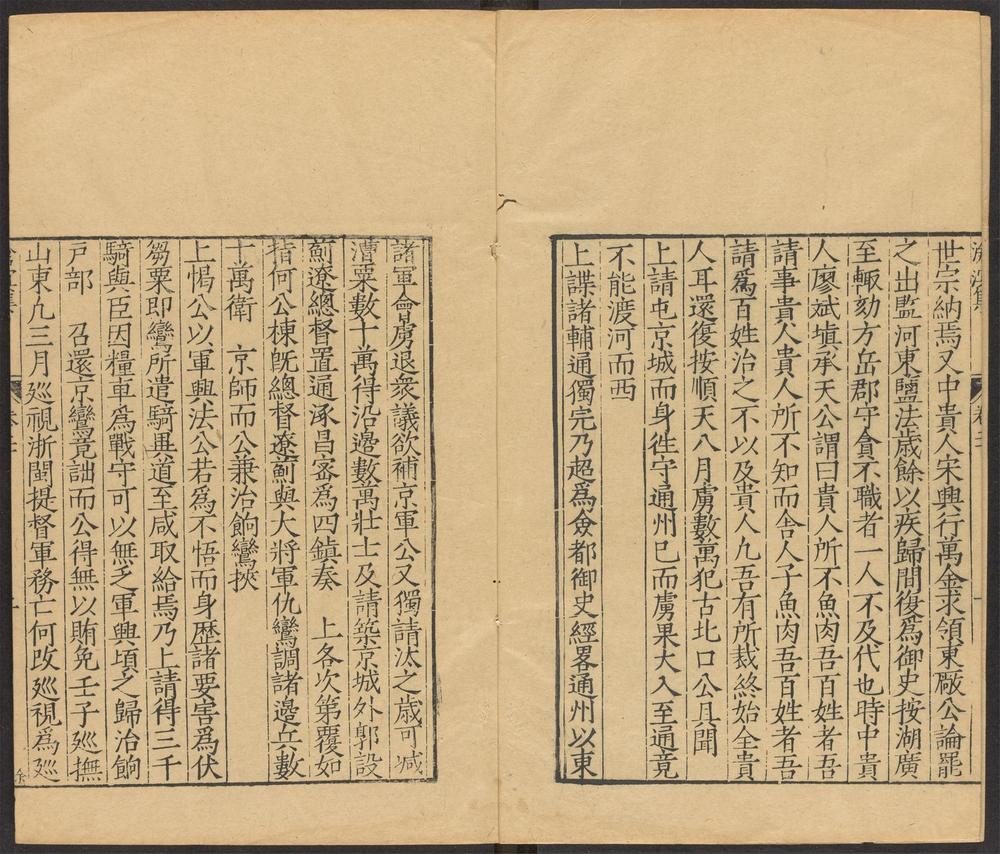 世宗納焉又中貴人宋興行萬金求領東廠公論罷
之出監河東鹽法歲餘以疾歸間復爲御史按湖廣
至輙劾方岳郡守貪不職者一人不及代也時中貴
人廖斌塡承天公謂曰貴人所不魚肉吾百姓者吾
請事貴人貴人所不知而舎人子魚肉吾百姓者吾
請爲百姓治之不以及貴人凢吾有所裁終始全貴
人耳還復按順天八月虜數萬犯古北口公具聞
上請屯京城而身徃守通州已而虜果大入至通竟
不能渡河而西
上諜諸輔通獨完乃超爲僉都御史經畧通州以東
諸軍會虜退衆議欲補京軍公又獨請汰之歲可减
漕粟數十萬得沿邊數萬壯士及請築京城外郭設
薊遼總督置通涿昌宻爲四鎮奏 上各次第覆如
指何公棟旣總督遼薊與大將軍仇鸞調諸邊兵數
十萬衛 京師而公兼治餉鸞挾
上愒公以軍興法公若爲不悟而身歴諸要害爲伏
芻粟即鸞所遣騎異道至咸取給焉乃上請得三千
騎與臣因糧車爲戰守可以無乏軍興頃之歸治餉
戸部 召還京鸞竟詘而公得無以賄免壬子廵撫
山東凢三月廵視浙閩提督軍務亡何改廵視爲廵